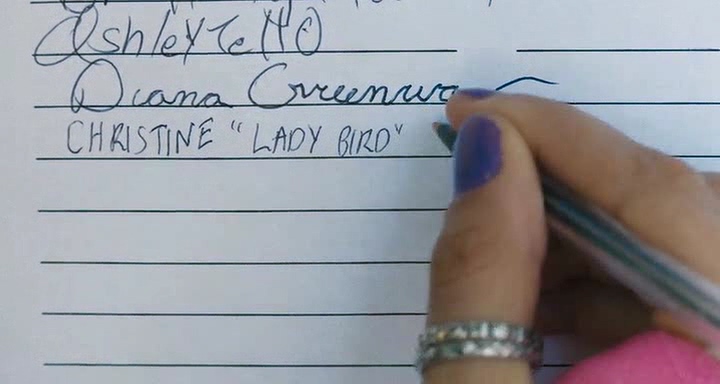 Ashley Tello
Diana
CHRISTINE "LADY BIRD"